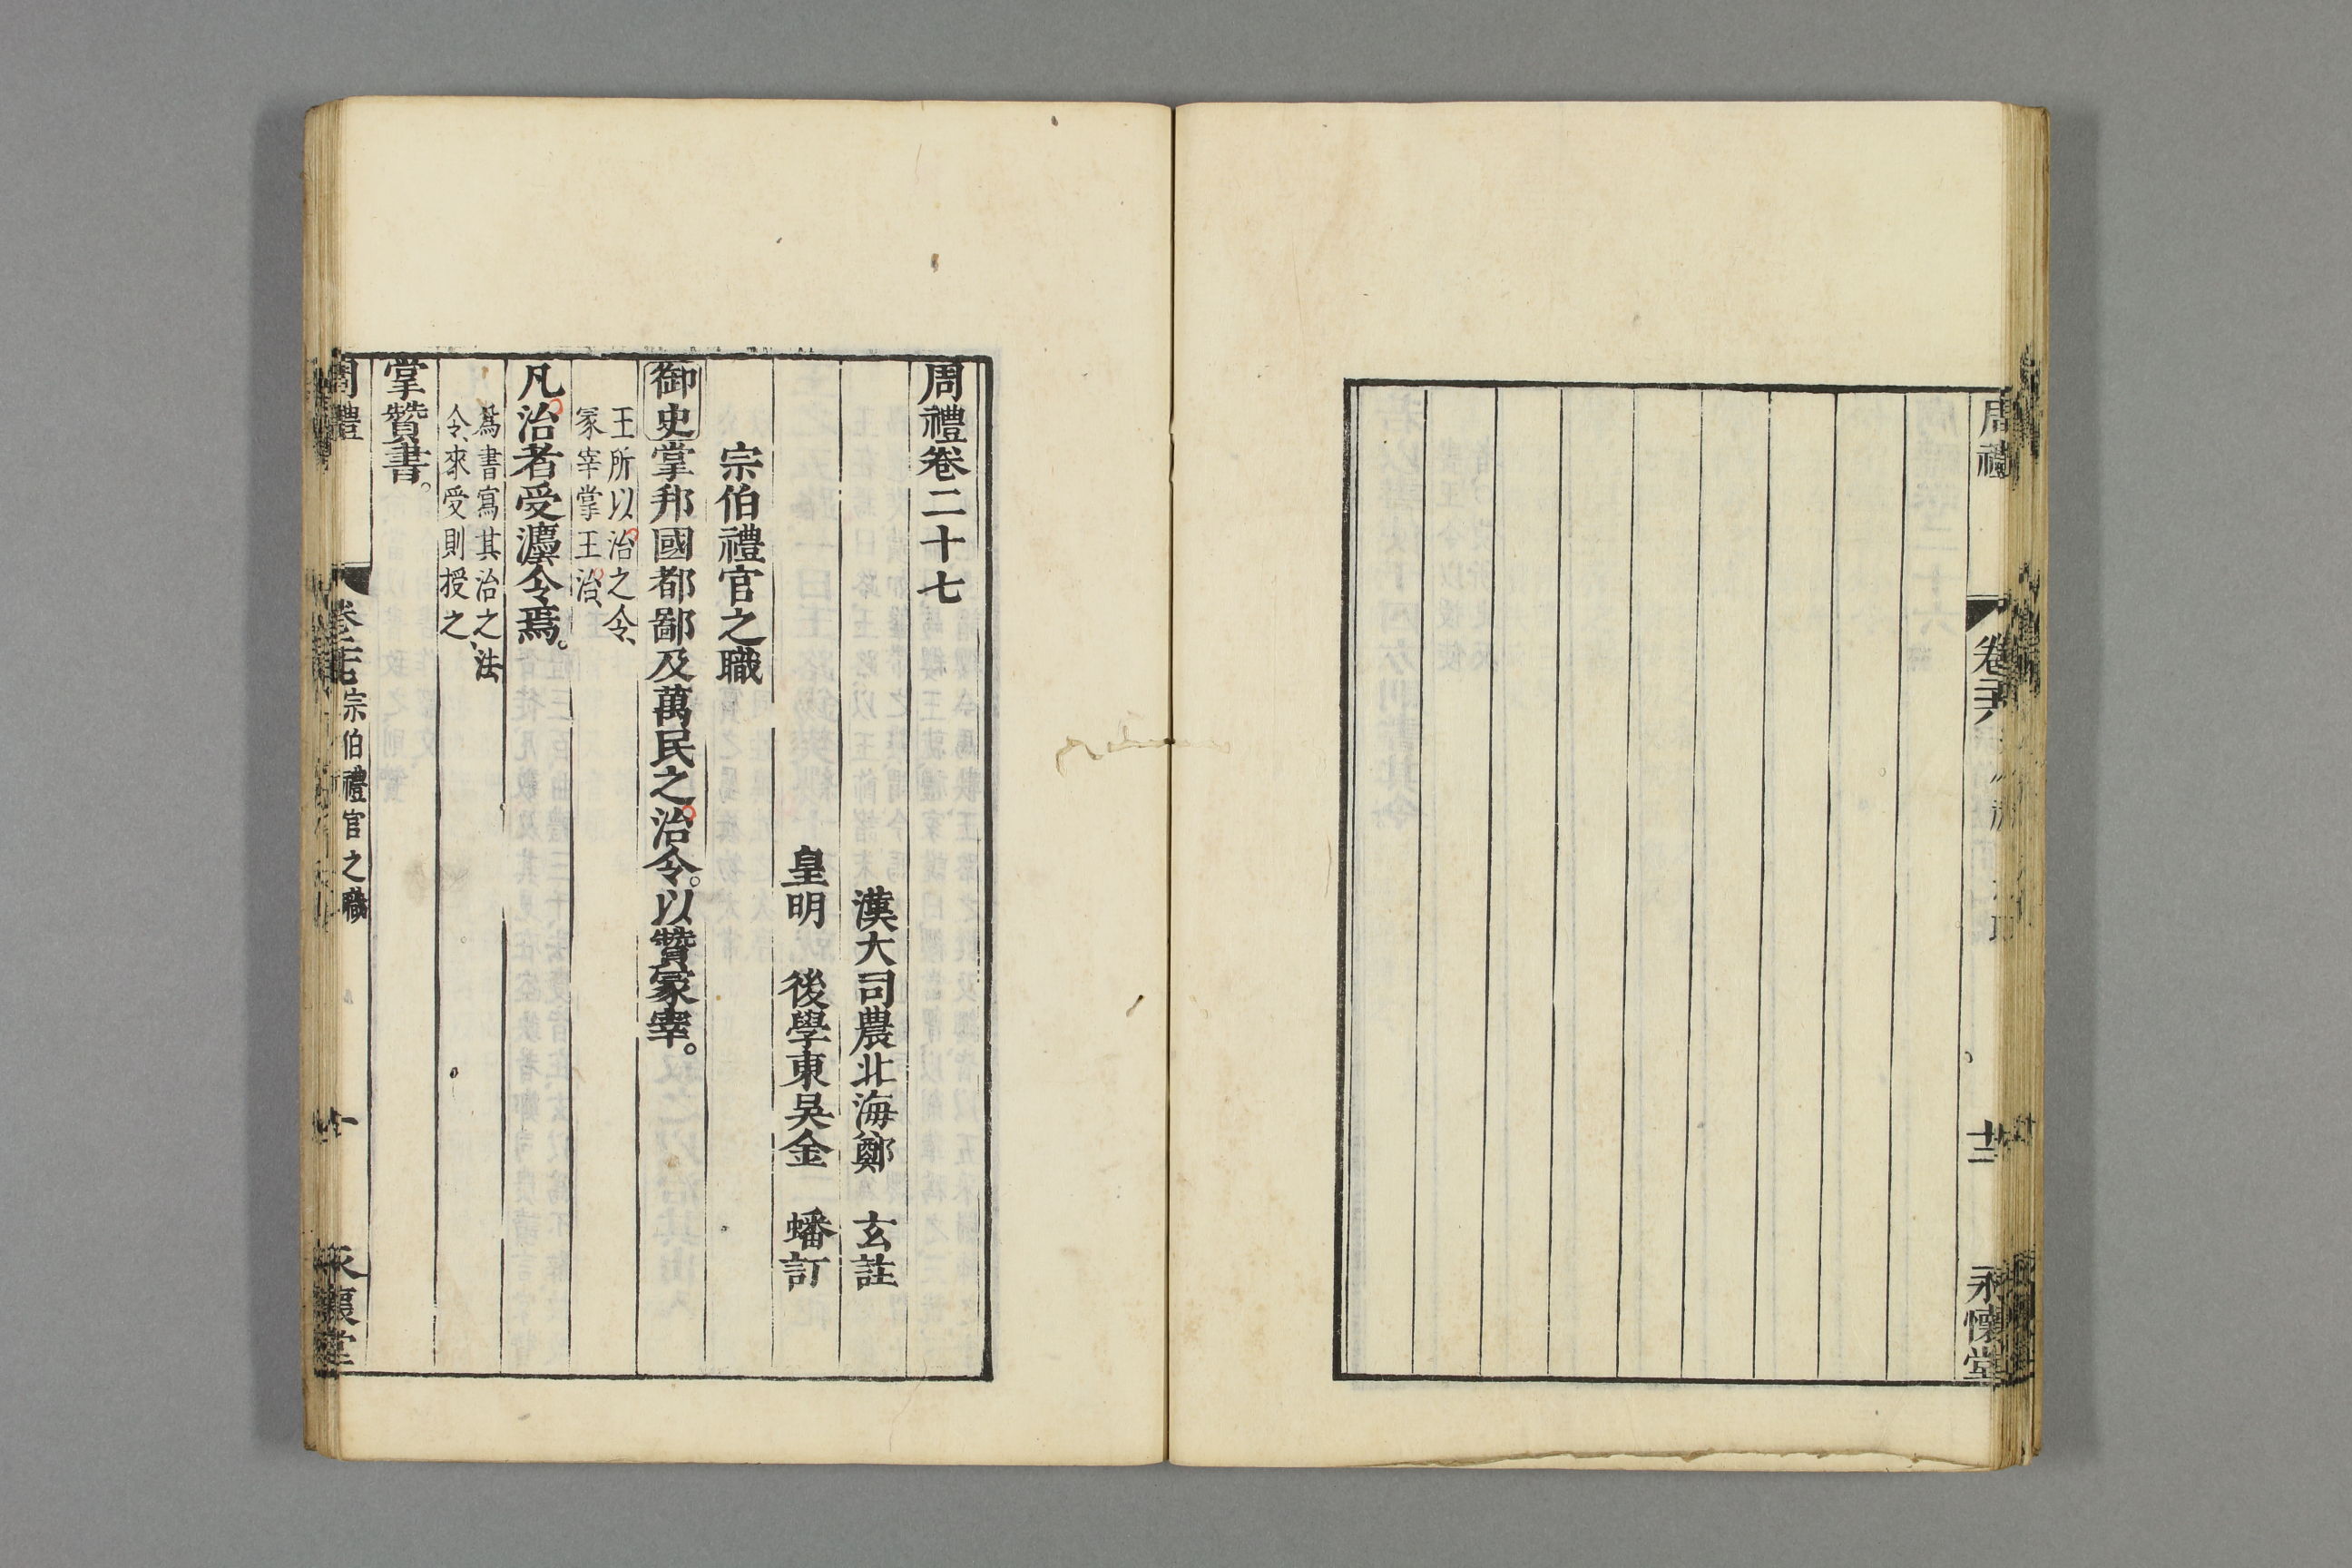 周禮
卷二十六
廿二
永懷堂
周禮卷二十七
漢大司農北海鄭 玄註
皇明 後學東吳金 蟠訂
宗伯禮官之職
御史掌邦國都鄙及萬民之治令。以贊冢宰。
王所以治之令、
冢宰掌王治、
凡治者受灋令焉。
爲書寫其治之法
令、來受則授之、
掌贊書。
周禮
卷二十七 宗伯禮官之職
一
永懷堂